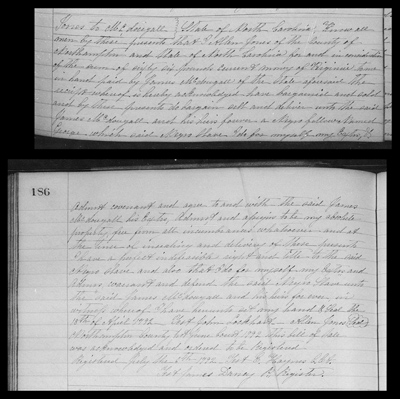 Jones to McDougall } State of North Carolina; Know all
men by these presents that I Allen Jones of the County of
Northampton and State of North Carolina for and in consideration
of the sum of sixty six pounds current money of Virginia to me
in hand paid by James McDougall of the State aforesaid the
receipt whereof is hereby acknowledged have bargained and sold
and by these presents do bargain sell and deliver unto the said
James McDougall and his heirs forever a Negro fellow named
George which said Negro Slave I do for myself my Exrs,
186
Admrs covenant and agree to and with the said James
McDougall his Exrs, Admrs and assigns to be my absolute
property free from all incumbrances whatsoever and at
the time of ensealing and delivery of these presents
I have a perfect indefeasible right and title to the said
Negro slave and also that I do for myself my Exrs and
Admrs covenant and defend the said Negro Slave unto
the said James McDougall and his heirs forever in
witness whereof I have hereunto set my hand & Seal the
9th of April 1792 Test John Lockhart Allen Jones (Seal)
Northampton County June Court 1792 This bill of Sale
was acknowledged and ordered to be Registered
Registered July the 5th 1792 Test E. Haynes C.C.
Test James Dancy Register